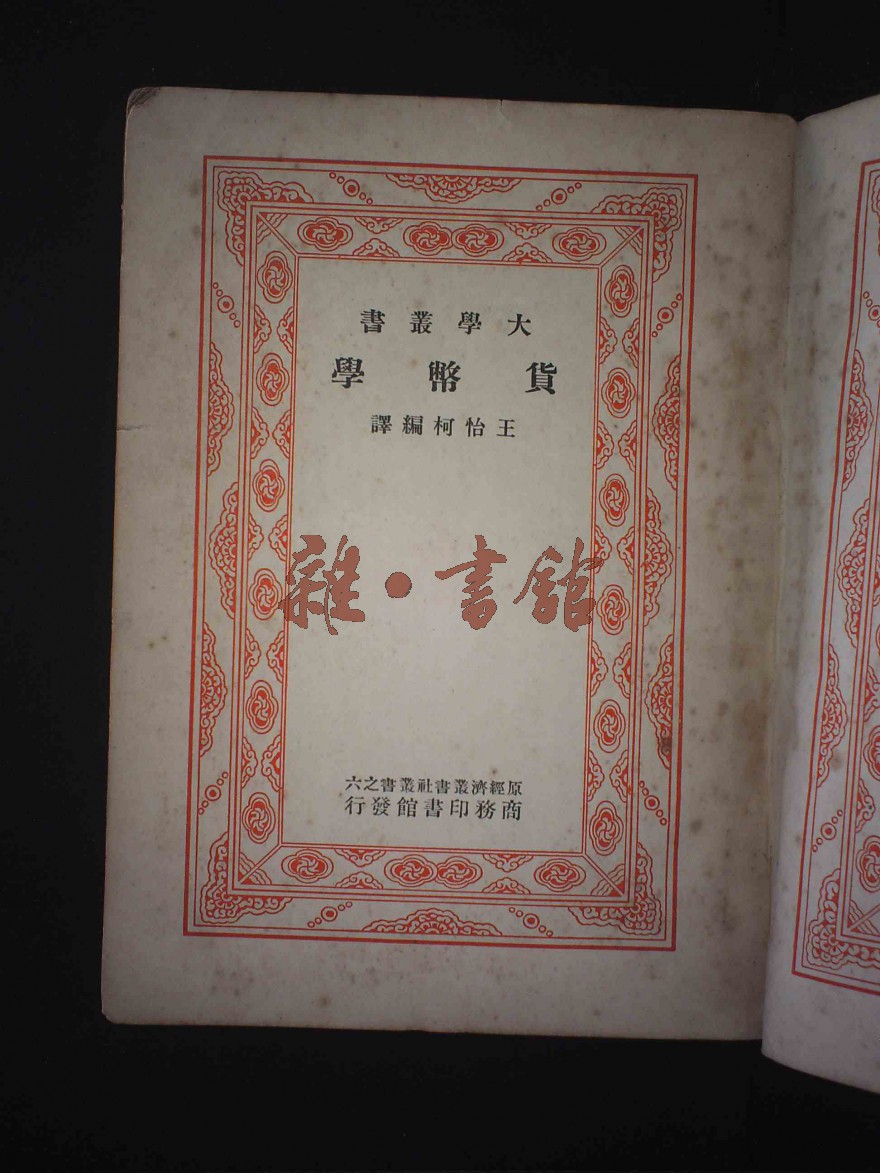 大學叢書
貨幣學
王怡柯編譯
雜·書館
原經濟叢書社叢書之六
商務印書館發行